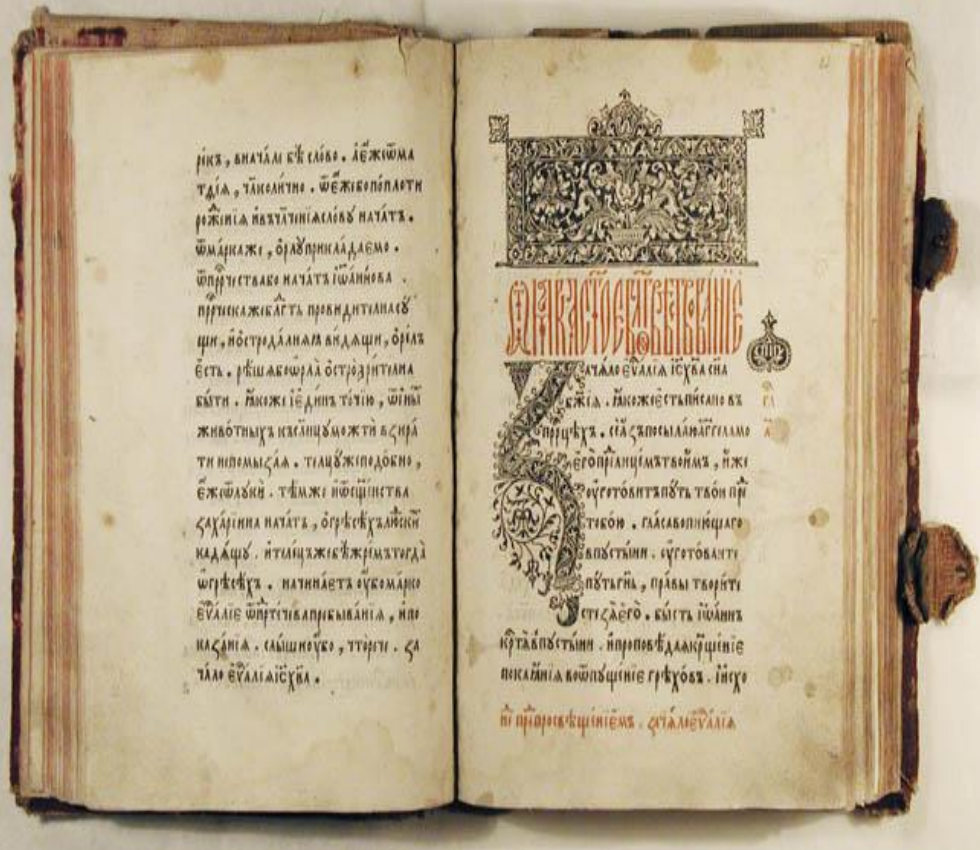 рѐкъ, внача́лѣ бѣ̀ сло́во. а҆е҆́жеѿма
тѳі́а, ꙗ҆́коли́чно. ѿе҆́жебопопло́ти
рожє́нїа и҆въчл҃че́нїасло́вꙋ нача́тъ.
ѿма́ркаже, ѻ҆рлꙋ̀прикла́даемо.
ѿпррⷪ҇чествабо нача́тъ і҆ѡа́ннова.
пррⷪ҇ческажебл҃гⷣть прови́дителнасꙋ́
щи, и҆ѻ҆строда́лнꙗꙗ ви́дѧщи, ѻ҆ре́лъ
є҆́сть.
бы́ти. ꙗ҆́коже і҆є҆ди́нъ то́чїю,
живо́тныхъ късл҃нцꙋмо́жти взира́
ти непомыза́ѧ. телцꙋ́жеподо́бно,
є҆́жеѿлꙋкѝ. тѣ́мже и҆ѿсщ҃е́нства
заха́рїина нача́тъ, ѻ҆грѣсѣ́хълюски́
кадѧ́щꙋ. и҆теле́цъжебѣ̀жре́мътогда̀
ѡ҆грѣсѣ́хъ. начина́етъ ᲂу҆́бома́рко
є҆ѵⷢ҇а́лїе ѿпрⷣте́чевапребыва́нїѧ, и҆по
каза́нїѧ. слы́шиᲂу҆̀бо, что̀речѐ. за
ча́ло є҆ѵⷢ҇а́лїѧі҆с҃х҃ва.
ача́ло є҆ѵⷢ҇а́лїѧ і҆с҃х҃ва сн҃а
бж҃їѧ. ꙗ҆́кожеє҆́стьпи́сано въ
прⷪ҇рцѣхъ. се́а҆зъпосыла́юа҆́гг҃ламо
его̀пре́длице́мътвои́мъ, и҆́же
ᲂу҆гото́витъпꙋ́ть тво́и пре
тобо́ю. гла́съвопию́щаго
впꙋсты́ни. ᲂу҆гото́ваите
пꙋ́тьгн҃ь, пра́вы твори́те
стезѧ̀є҆гѡ̀. бы́сть і҆ѡа́ннъ
крⷭ҇тѧ́йвпꙋсты́ни. и҆проповѣ́даѧкрⷳ҇ще́нїе
покаѧ́нїѧ воѿпꙋще́нїе грѣхо́въ. и҆и҆схо
прⷣпросвѣще́нїемъ. зача́лоє҆ѵⷢ҇а́лїѧ